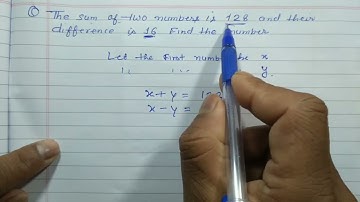 C The sum of two numbers is 128 and their
difference is 16 Find the number
Let the first number be x
" " y
x+y =
x-y =